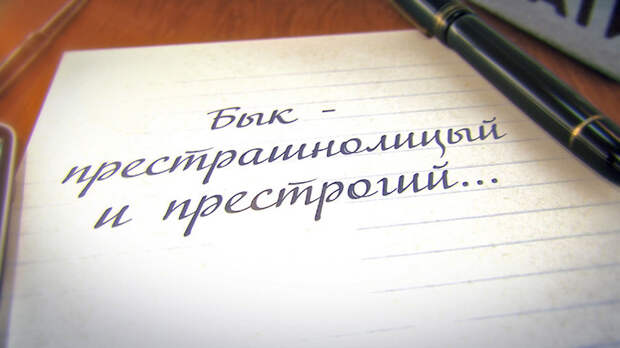 Бык -
престрашнолицый
и престрогий...